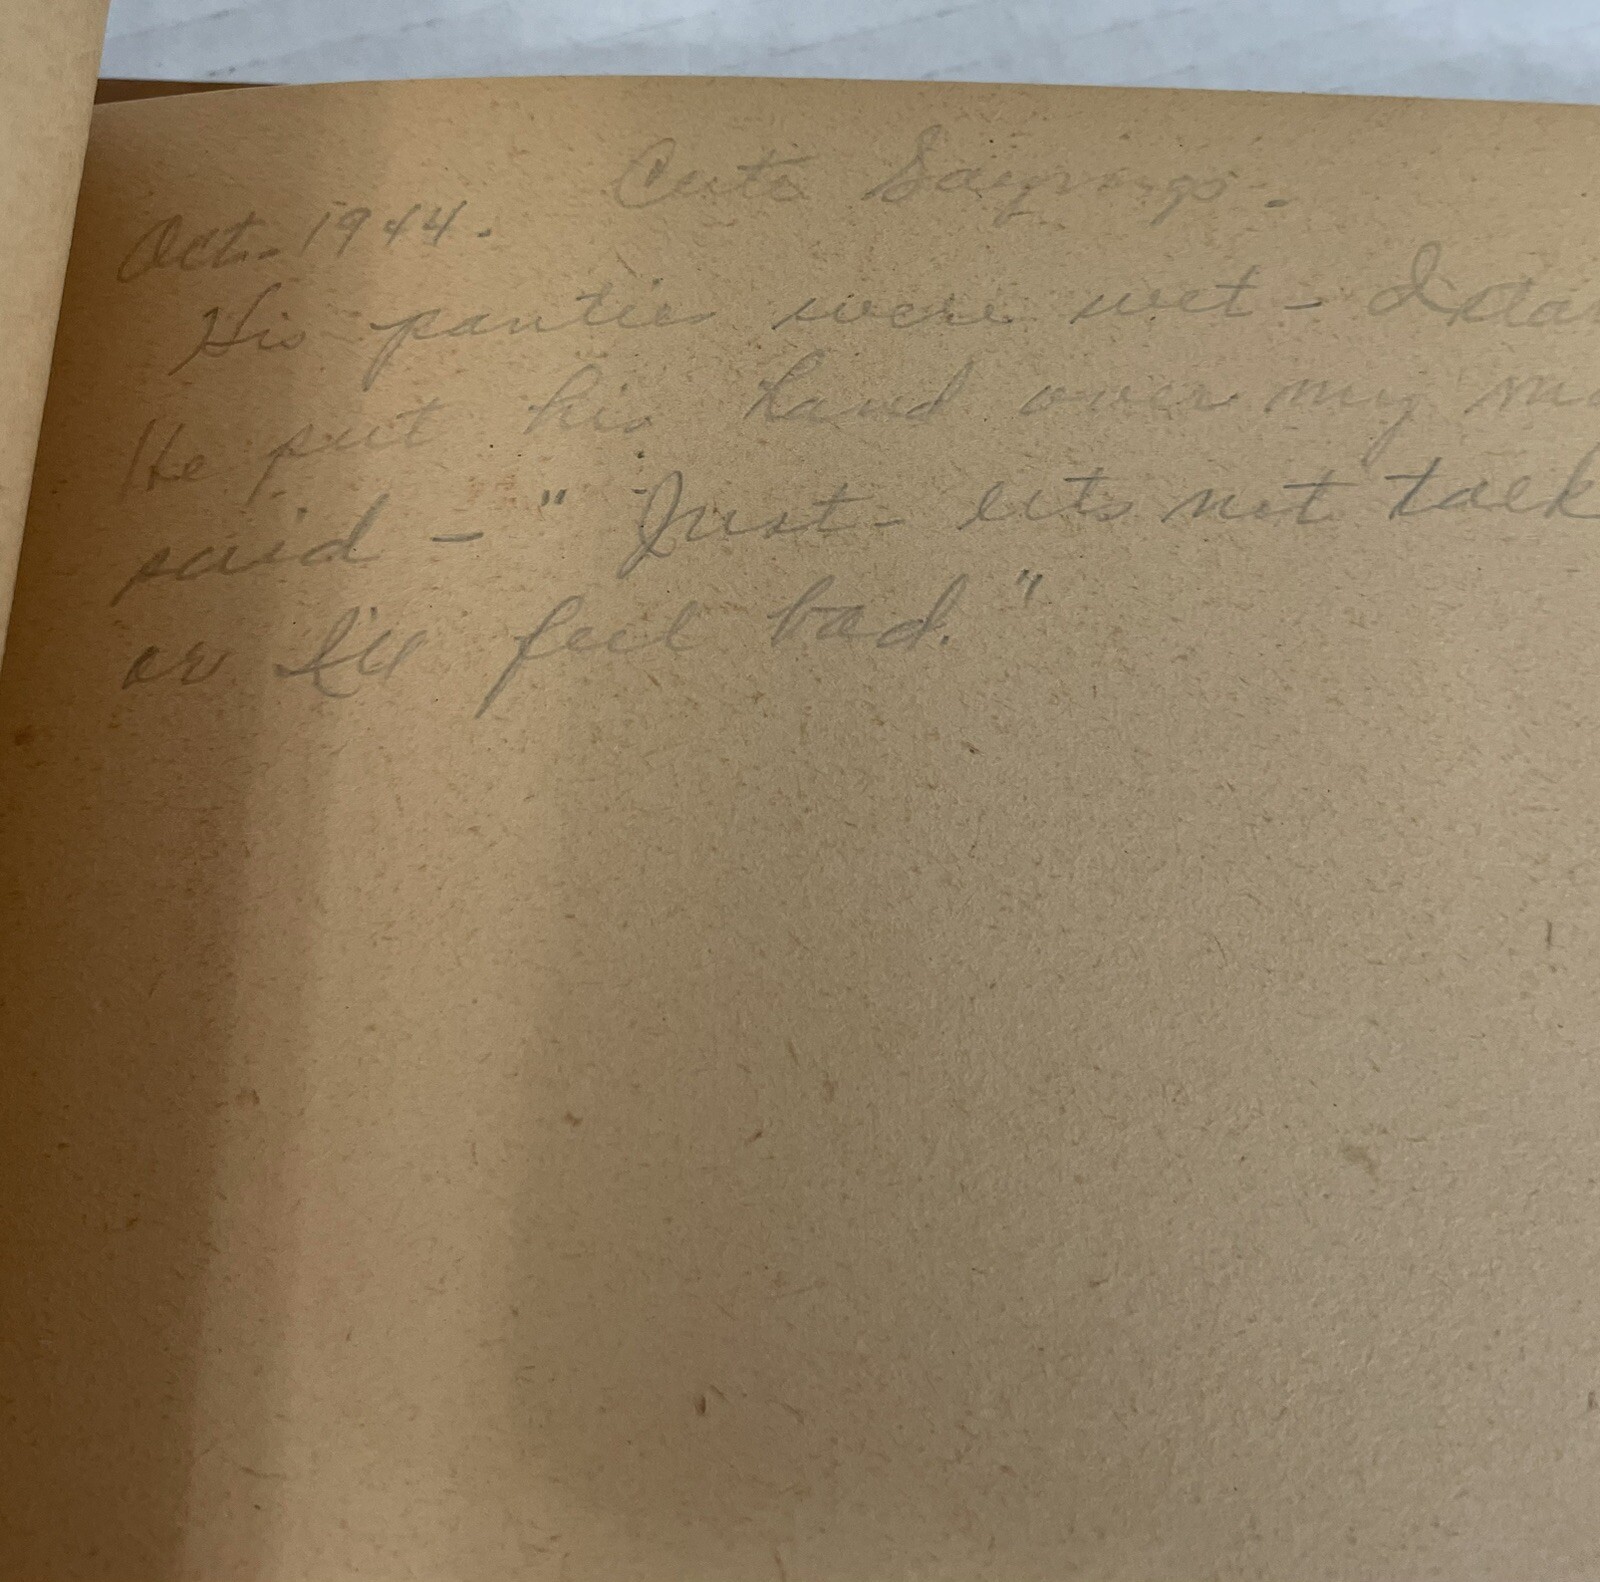 Cute Sayings -
Oct. 1944.
His panties were wet - I
He put his hand over my
said - " Just - lets not talk
or I'll feel bad."